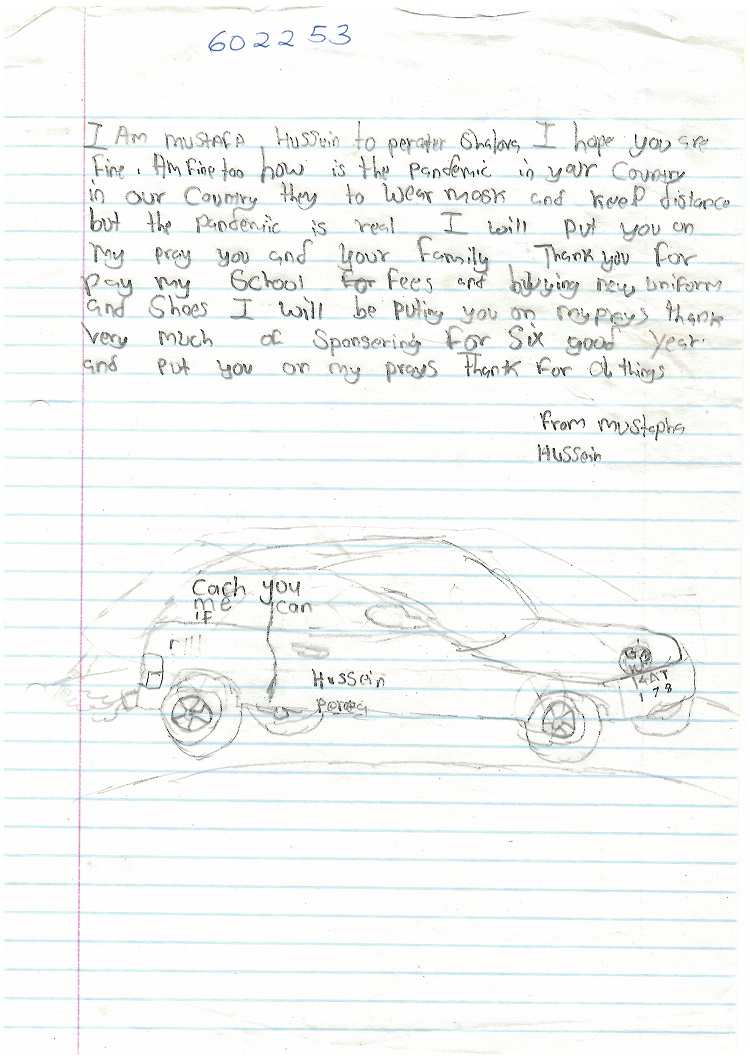 602253
I Am MUSTAFA Hussein to perater Shalova I hope you are
Fine. Am Fine too how is the Pandemic in your Country
in our Country they to Wear mask and Keep distance
but the Pandemic is real I will put you on
my pray you and your Family Thank you For
pay my School For Fees and buying new uniform
and Shoes I will be puting you on my prays thank
very much of Sponsering For Six good year.
and put you on my prays Thank For all things
From mustapha
Hussein
Cach you
me can
if
Hussein
14AT
178